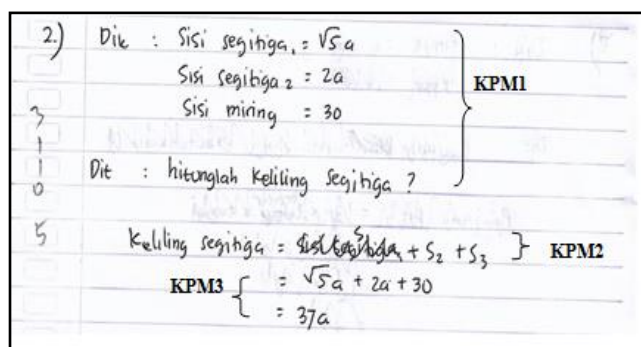 2.) Dik : Sisi segitiga₁ = √5a
Sisi segitiga₂ = 2a
Sisi miring = 30
KPM1
3
1
1
0
Dit : hitunglah keliling segitiga ?
5
Keliling segitiga = S₁ + S₂ + S₃
KPM2
KPM3
= √5a + 2a + 30
= 37a